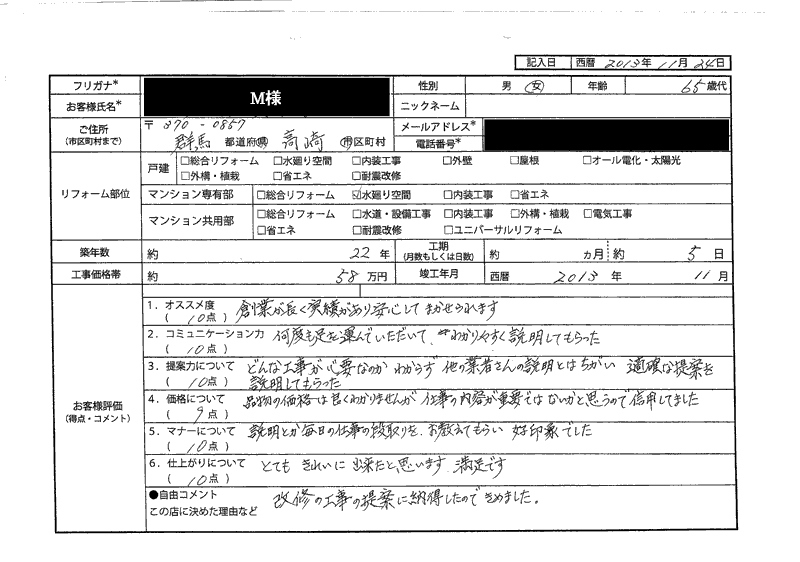 記入日 西暦 2013年 11月 24日
フリガナ*
お客様氏名* M様
性別 男 女 年齢 65歳代
ニックネーム
ご住所
(市区町村まで)
〒 370-0857
群馬 都道府県 高崎 市区町村
メールアドレス*
電話番号*
リフォーム部位
戸建 □総合リフォーム □水廻り空間 □内装工事 □外壁 □屋根 □オール電化・太陽光
□外構・植栽 □省エネ □耐震改修
マンション専有部 □総合リフォーム ☑水廻り空間 □内装工事 □省エネ
マンション共用部 □総合リフォーム □水道・設備工事 □内装工事 □外構・植栽 □電気工事
□省エネ □耐震改修 □ユニバーサルリフォーム
築年数 約 22 年 工期
(月数もしくは日数) 約 ヵ月 約 5 日
工事価格帯 約 58 万円 竣工年月 西暦 2013 年 11 月
お客様評価
(得点・コメント)
1. オススメ度
( 10点 ) 創業が長く実績があり安心してまかせられます
2. コミュニケーション力
( 10点 ) 何度も足を運んでいただいて、わかりやすく説明してもらった
3. 提案力について
( 10点 ) どんな工事が必要なのか わからず 他の業者さんの説明とはちがい 適確な提案を
説明してもらった
4. 価格について
( 9点 ) 品物の価格は良くわかりませんが 仕事の内容が重要ではないかと思うので信用してました
5. マナーについて
( 10点 ) 説明とか毎日の仕事の段取りを、お教えてもらい 好印象でした
6. 仕上がりについて
( 10点 ) とても きれいに 出来たと思います 満足です
●自由コメント
この店に決めた理由など
改修の工事の提案に納得したのできめました。